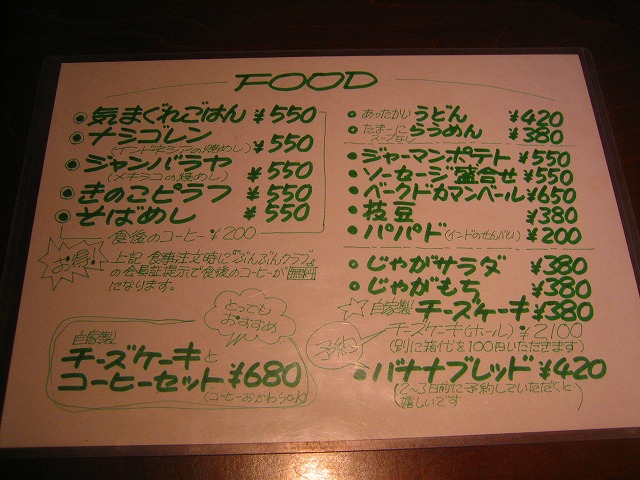 FOOD
気まぐれごはん ¥550
ナシゴレン
(インドネシアの焼めし) ¥550
ジャンバラヤ
(メキシコの焼めし) ¥550
きのこピラフ ¥550
そばめし ¥550
食後のコーヒー ¥200
お得!!
上記 食事注文時に『ぶんぶんクラブ』
の会員証提示で食後のコーヒーが無料
になります。
とっても
おすすめ
自家製
チーズケーキと
コーヒーセット ¥680
(コーヒーおかわりok)
あったかい うどん ¥420
たまーに らうめん ¥380
スープなし
ジャーマンポテト ¥550
ソーセージ盛合せ ¥550
ベークドカマンベール ¥650
枝豆 ¥380
パパド (インドのせんべい) ¥200
じゃがサラダ ¥380
じゃがもち ¥380
自家製 チーズケーキ ¥380
チーズケーキ(ホール) ¥2100
(別に箱代を100円いただきます)
予約
バナナブレッド ¥420
(2〜3日前に予約していただくと
嬉しいです